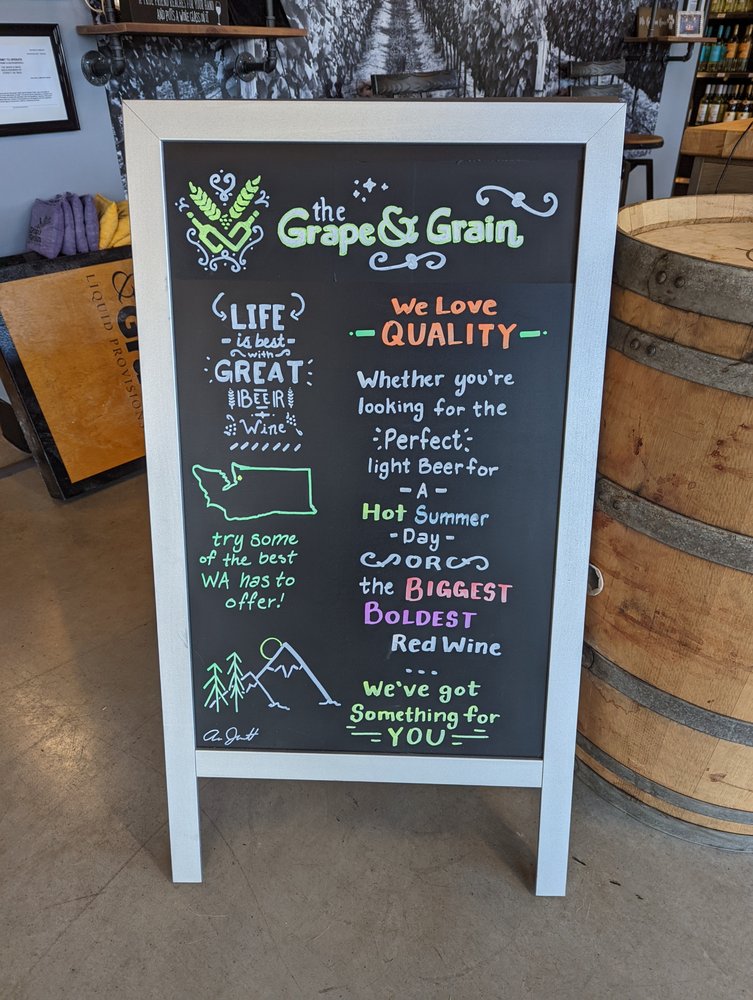 the
Grape & Grain
LIFE
is best
with
GREAT
BEER
+
Wine
try some
of the best
WA has to
offer!
We Love
QUALITY
Whether you're
looking for the
Perfect
light Beer for
- A -
Hot Summer
- Day -
OR
the BIGGEST
BOLDEST
Red Wine
...
We've got
Something for
YOU
LIQUID PROVISION
AND PUTS A WINE GLASS IN IT